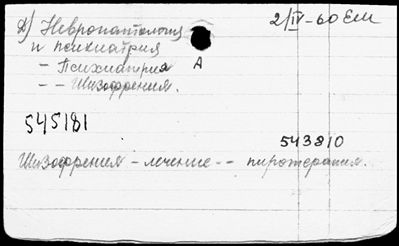 А) Невропатология 2/IV-60 ЕМ
и психиатрия
- Психиатрия А
- - Шизофрения.
545181
543810
Шизофрения - лечение - - пиротерапия.